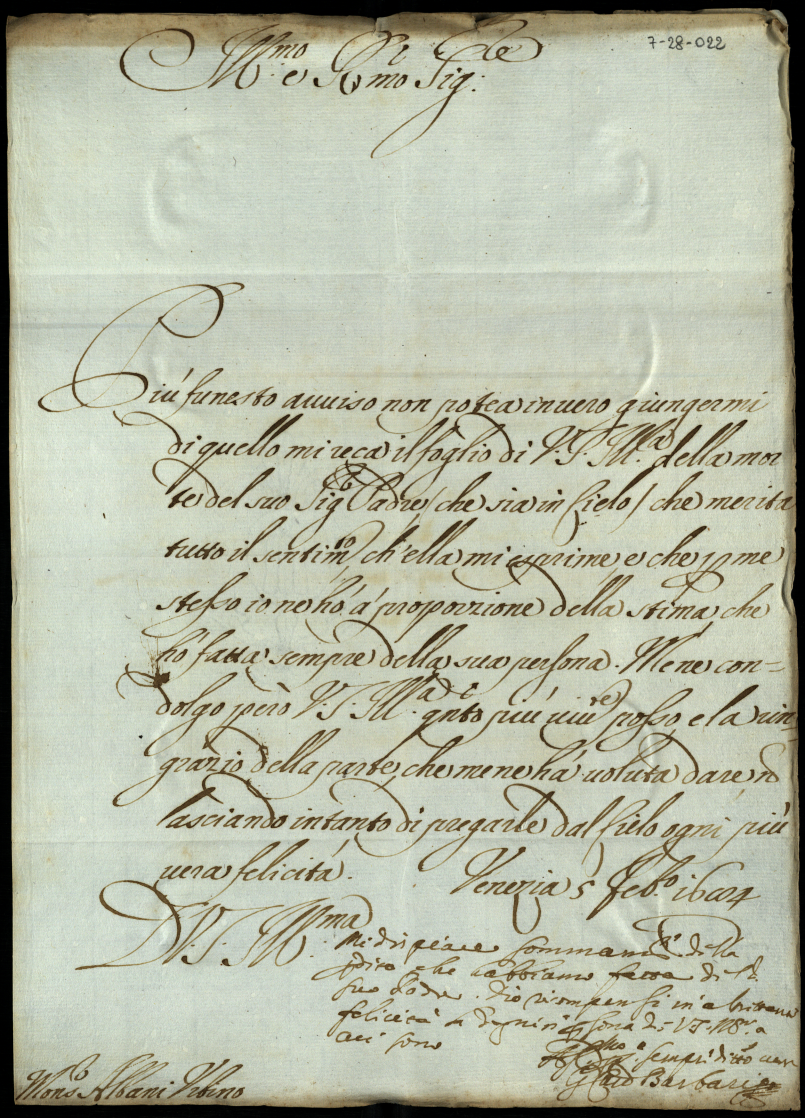 7-28-022
Ill.mo e R.mo Sig.
Più funesto auuiso non potea inuero giungermi
di quello mi reca il foglio di V.S. Ill.ma della mor
te del suo Sig.r Padre (che sia in Cielo) che merita
tutto il sentim.to ch'ella mi esprime, e che p me
stesso io ne hò à proporzione della stima, che
hò fatta sempre della sua persona. Me ne con=
dolgo però V.S. Ill.ma qnto più uiu.te posso, e la rin=
grazio della parte, che me ne hà uoluta dare, nō
lasciando intanto di pregarle dal Cielo ogni più
uera felicità. Venezia 5 Feb.o
D V.S. Ill.ma
Mi dispiace sommam.te della
che habbiamo fatta di
suo Padre. Dio ricompensi in
felicità di V.S. Ill.ma a
cui sono
Barbarigo
Mons.r Albani Vrbino